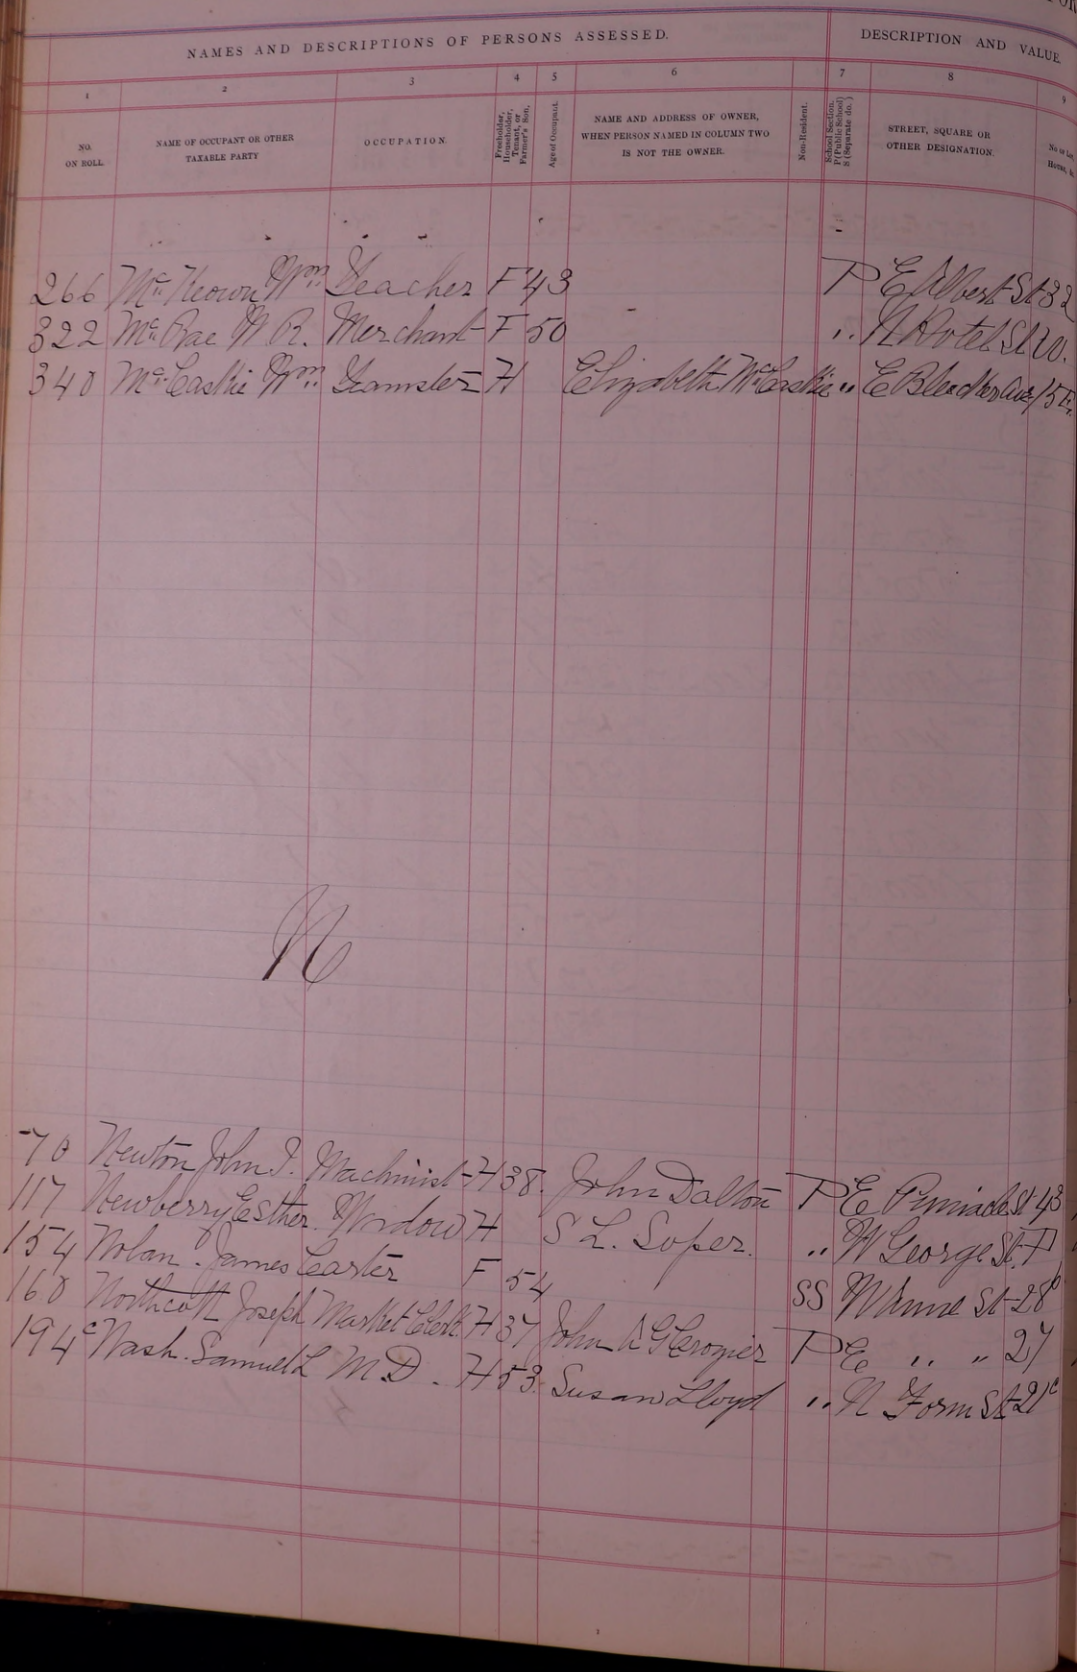 NAMES AND DESCRIPTIONS OF PERSONS ASSESSED. DESCRIPTION AND VALUE
1 2 3 4 5 6 7 8 9
NO. ON ROLL. NAME OF OCCUPANT OR OTHER TAXABLE PARTY OCCUPATION. Freeholder, Householder, Tenant, or Farmer's Son. Age of Occupant. NAME AND ADDRESS OF OWNER, WHEN PERSON NAMED IN COLUMN TWO IS NOT THE OWNER. Non-Resident. School Section. P (Public School) S (Separate do.) STREET, SQUARE OR OTHER DESIGNATION. No or Lot, House, &c.
266 McKeown Wm Teacher F 43 P E Albert St 32
322 McRae W R. Merchant F 50 " N Hotel St 20.
340 McCaskie Wm Teamster H Elizabeth McCaskie " E Bleecker Ave 15 E.
N
70 Newton John I. Machinist H 38. John Dalton P E Pinnacle St 43
117 Newberry Esther. Widow H S L. Soper. " W George St. F
154 Nolan. James Carter F 54 SS W St 28
160 Northcott Joseph Market Clerk H 37 John A G Crozier P E " " 27
194c Nash. Samuel L M.D. H 53. Susan Lloyd " N Form St 21c